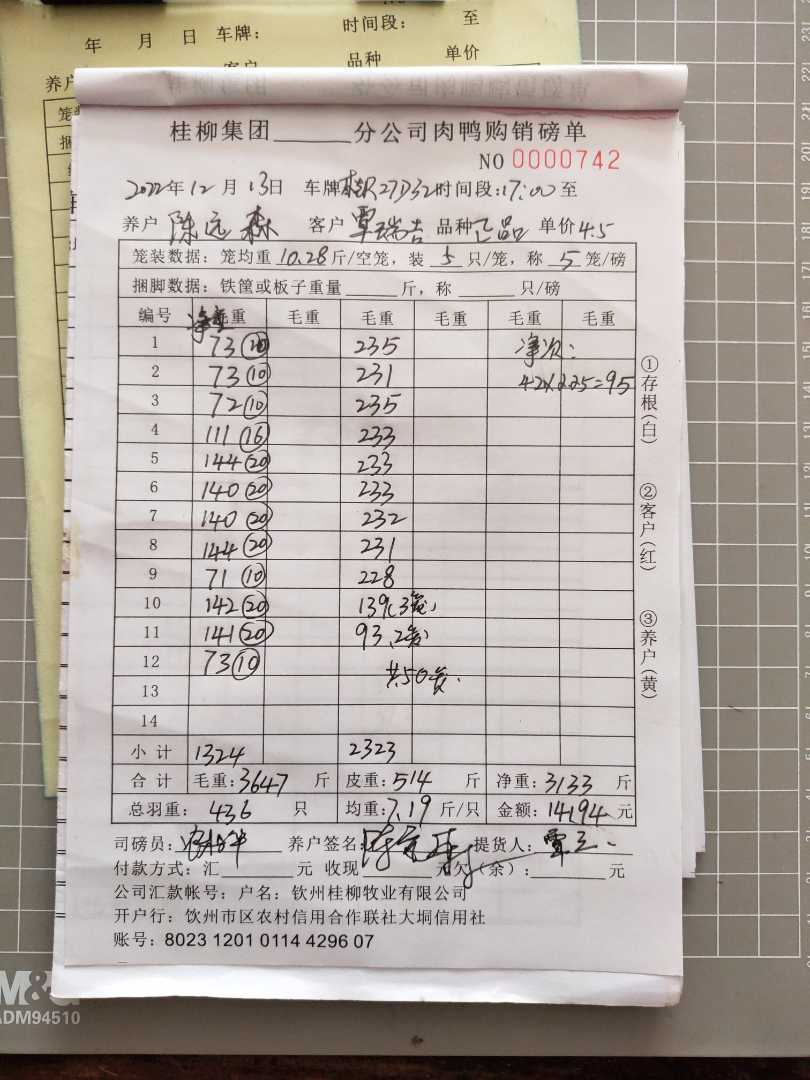 年 月 日 车牌： 时间段： 至
品种 单价
养户
桂柳集团______分公司肉鸭购销磅单
NO 0000742
2022年12月13日 车牌 27D32时间段:17:00至
养户 陈远森 客户 覃瑞吉 品种 正品 单价4.5
笼装数据：笼均重 10.28 斤/空笼，装 5 只/笼，称 5 笼/磅
捆脚数据：铁筐或板子重量______斤，称______只/磅
编号 净重 毛重 毛重 毛重 毛重 毛重 毛重
1 73(10) 235 净次：
2 73(10) 231 42×2.25=95
3 72(10) 235
4 111(16) 233
5 144(20) 233
6 140(20) 233
7 140(20) 232
8 144(20) 231
9 71(10) 228
10 142(20) 139(3笼)
11 141(20) 93(2笼)
12 73(10) 共50笼.
13
14
小计 1324 2323
合计 毛重:3647 斤 皮重:514 斤 净重:3133 斤
总羽重： 436 只 均重:7.19 斤/只 金额:14194 元
司磅员: 养户签名: 提货人:
付款方式：汇______元 收现______元欠（余）:______元
公司汇款帐号：户名：钦州桂柳牧业有限公司
开户行：钦州市区农村信用合作联社大垌信用社
账号：8023 1201 0114 4296 07
①存根(白)
②客户(红)
③养户(黄)
M&G
ADM94510